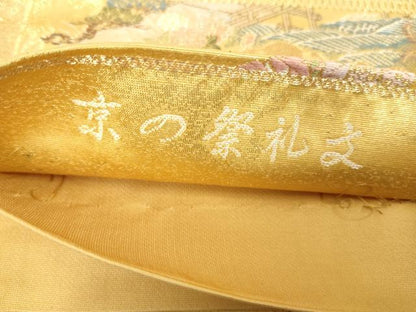 京の祭礼文